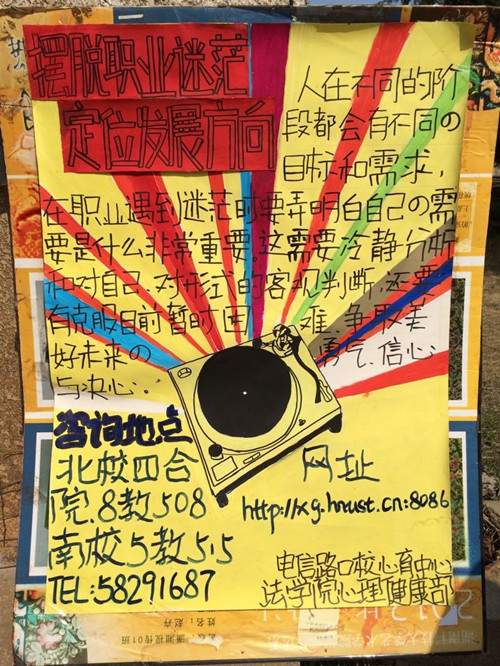 摆脱职业迷茫
定位发展方向
人在不同的阶
段都会有不同の
目标和需求，
在职业遇到迷茫时要弄明白自己の需
要是什么非常重要。这需要冷静分析
和对自己、对形式的客观判断，还要
有克服目前暂时困难、争取美
好未来の勇气、信心
与决心。
咨询地点
北校四合
院.8教508
南校5教515
TEL:58291687
网址
http://xg.hnust.cn:8086
电信路口校心育中心
法学院心理健康部